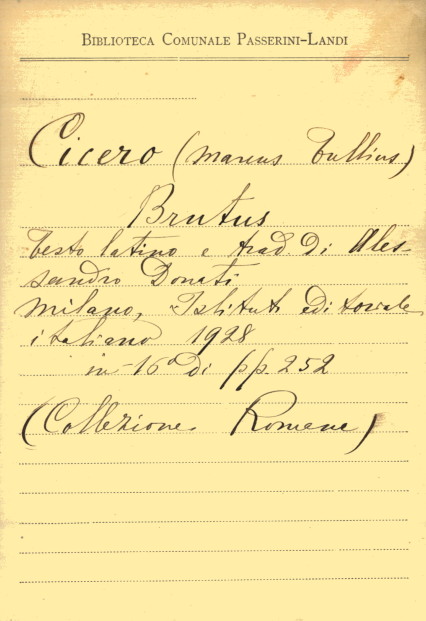 BIBLIOTECA COMUNALE PASSERINI-LANDI
Cicero (Marcus Tullius)
Brutus
Testo latino e trad. di Ales-
sandro Donati
Milano, Istituto editoriale
italiano 1928
in-16° di pp. 252
(Collezione Romana)